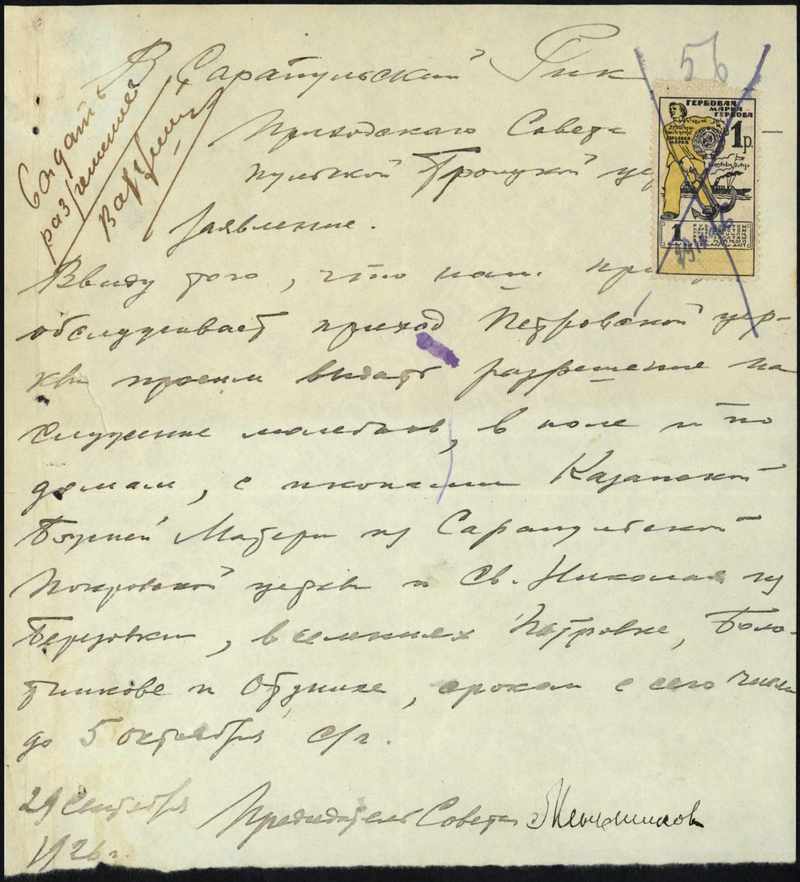 56
В Сарапульский Рик
Создать
разрешение
ГЕРБОВАЯ
МАРКА
1 р.
Приходского Совета
пульской Троицкой цер
Заявление.
1
Ввиду того, что наш при
обслуживает приход Петровской цер-
кви просим выдать разрешение на
служение молебнов, в поле и по
домам, с иконами Казанской
Божией Матери из Сарапульской
Покровской церкви и Св. Николая из
Березовки, в селениях Петровке, Боло-
тникове и , сроком с сего числа
до 5 октября с/г.
29 сентября
1926 г.
Председатель Совета